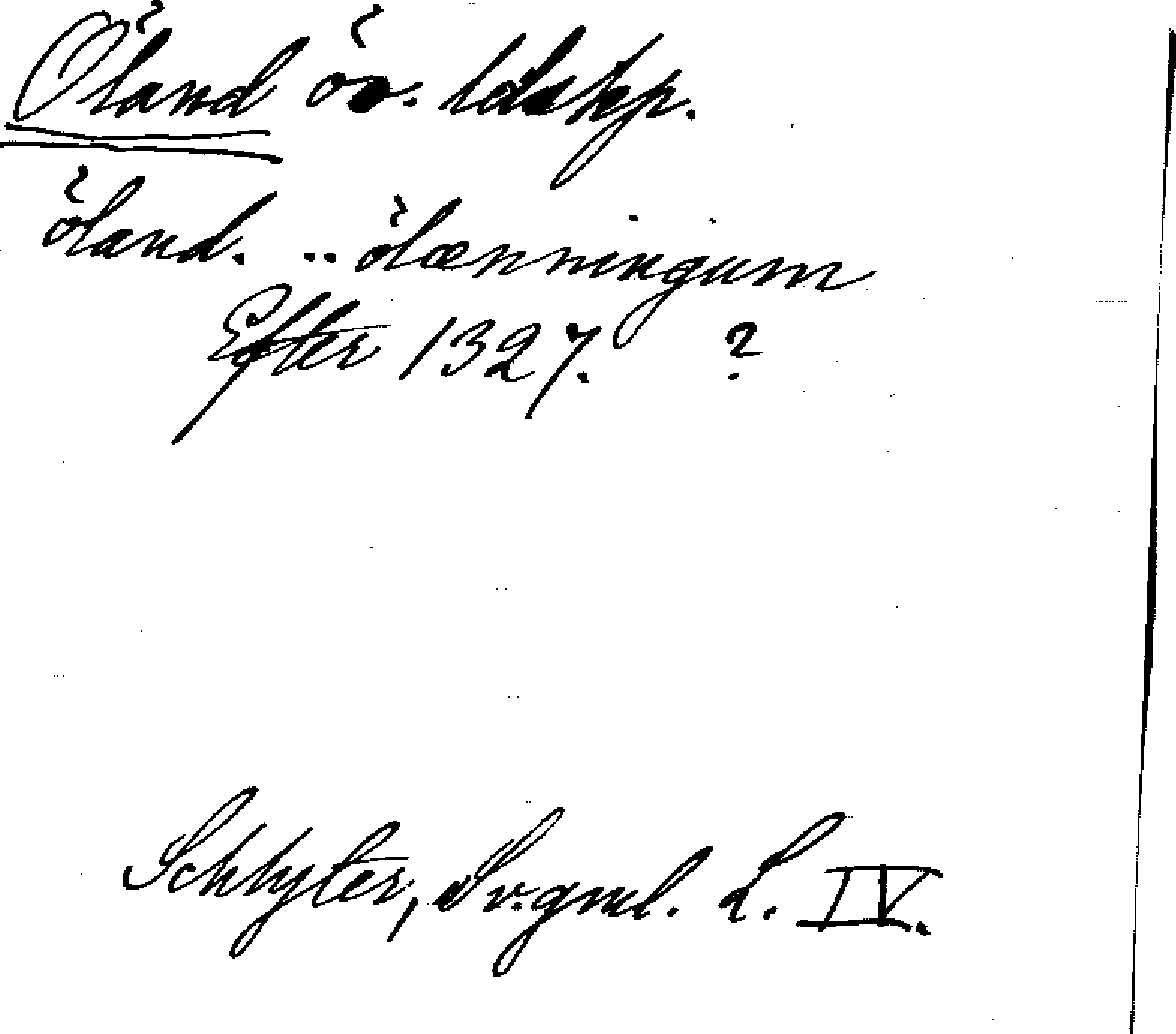 Öland ö o. ldskp.
öland. .. ölænningum
Efter 1327. ?
Schlyter, Sv. gml. L. IV.